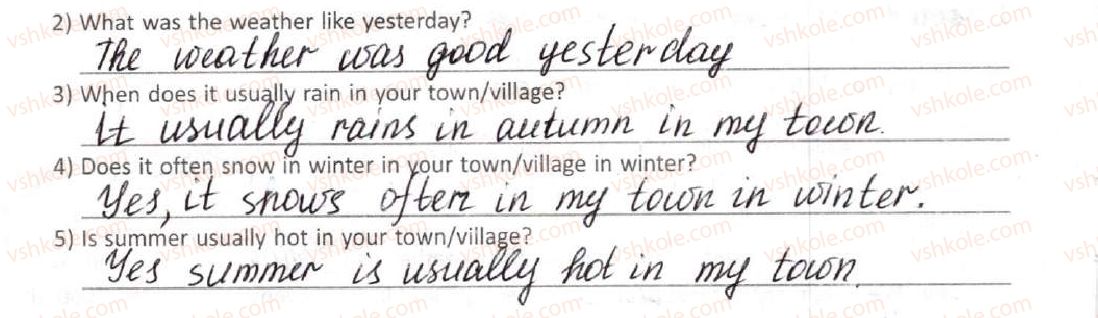 2) What was the weather like yesterday?
The weather was good yesterday
3) When does it usually rain in your town/village?
It usually rains in autumn in my town.
4) Does it often snow in winter in your town/village in winter?
Yes, it snows often in my town in winter.
5) Is summer usually hot in your town/village?
Yes summer is usually hot in my town.